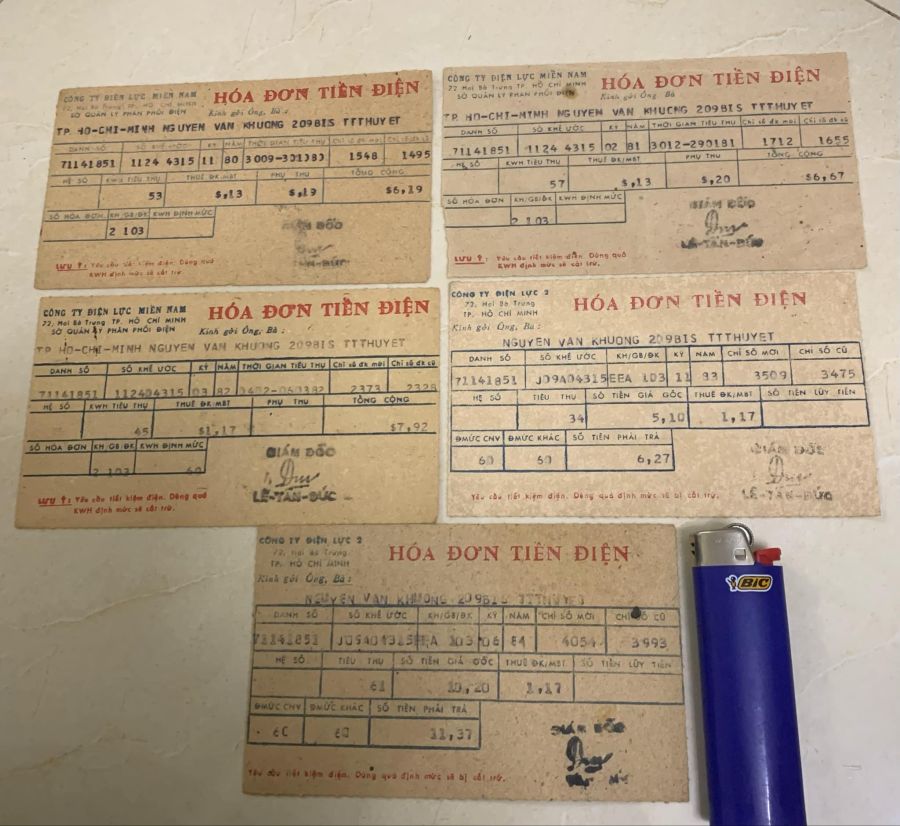 CÔNG TY ĐIỆN LỰC MIỀN NAM
72, Hai Bà Trưng TP. HỒ CHÍ MINH
SỞ QUẢN LÝ PHÂN PHỐI ĐIỆN
HÓA ĐƠN TIỀN ĐIỆN
Kính gởi Ông, Bà :
TP HO-CHI-MINH NGUYEN VAN KHUONG 209BIS TTTHUYET
DANH SỐ SỐ KHẾ ƯỚC KỲ NĂM THỜI GIAN TIÊU THỤ Chỉ số đk mới Chỉ số đk cũ
71141851 1124 4315 11 80 1548 1495
HỆ SỐ KWH TIÊU THỤ THUẾ ĐK/MBT PHỤ THU TỔNG CỘNG
53 $,13 $,19 $6,19
SỐ HÓA ĐƠN KH/GB/ĐK KWH ĐỊNH MỨC
2 103
GIÁM ĐỐC
LƯU Ý : Yêu cầu tiết kiệm điện. Dùng quá
KWH định mức sẽ cắt trừ.
CÔNG TY ĐIỆN LỰC MIỀN NAM
72 Hai Bà Trưng TP. HỒ CHÍ MINH
SỞ QUẢN LÝ PHÂN PHỐI ĐIỆN
HÓA ĐƠN TIỀN ĐIỆN
Kính gởi Ông, Bà
TP. HO-CHI-MINH NGUYEN VAN KHUONG 209BIS TTTHUYET
DANH SỐ SỐ KHẾ ƯỚC KỲ NĂM THỜI GIAN TIÊU THỤ Chỉ số đk mới Chỉ số đk cũ
71141851 1124 4315 02 81 3012-290181 1712 1655
HỆ SỐ KWH TIÊU THỤ THUẾ ĐK/MBT PHỤ THU TỔNG CỘNG
57 $,13 $,20 $6,67
SỐ HÓA ĐƠN KH/GB/ĐK KWH ĐỊNH MỨC
2 103
GIÁM ĐỐC
LÊ-TẤN-ĐỨC
LƯU Ý : Yêu cầu tiết kiệm điện. Dùng quá
KWH định mức sẽ cắt trừ.
CÔNG TY ĐIỆN LỰC MIỀN NAM
72, Hai Bà Trưng TP. HỒ CHÍ MINH
SỞ QUẢN LÝ PHÂN PHỐI ĐIỆN
HÓA ĐƠN TIỀN ĐIỆN
Kính gởi Ông, Bà :
TP HO-CHI-MINH NGUYEN VAN KHUONG 209BIS TTTHUYET
DANH SỐ SỐ KHẾ ƯỚC KỲ NĂM THỜI GIAN TIÊU THỤ Chỉ số đk mới Chỉ số đk cũ
71141851 112404315 03 82 0402-060382 2373 2328
HỆ SỐ KWH TIÊU THỤ THUẾ ĐK/MBT PHỤ THU TỔNG CỘNG
45 $1,17 $7,92
SỐ HÓA ĐƠN KH/GB/ĐK KWH ĐỊNH MỨC
2 103 60
GIÁM ĐỐC
LÊ-TẤN-ĐỨC
LƯU Ý : Yêu cầu tiết kiệm điện. Dùng quá
KWH định mức sẽ cắt trừ.
CÔNG TY ĐIỆN LỰC 2
72, Hai Bà Trưng
TP. HỒ CHÍ MINH
HÓA ĐƠN TIỀN ĐIỆN
Kính gởi Ông, Bà :
NGUYEN VAN KHUONG 209BIS TTTHUYET
DANH SỐ SỐ KHẾ ƯỚC KH/GB/ĐK KỲ NĂM CHỈ SỐ MỚI CHỈ SỐ CŨ
71141851 J09A04315 EEA 103 11 83 3509 3475
HỆ SỐ TIÊU THỤ SỐ TIỀN GIÁ GỐC THUẾ ĐK/MBT SỐ TIỀN LŨY TIẾN
34 5,10 1,17
ĐMỨC CNV ĐMỨC KHÁC SỐ TIỀN PHẢI TRẢ
60 60 6,27
GIÁM ĐỐC
LÊ-TẤN-ĐỨC
Yêu cầu tiết kiệm điện. Dùng quá định mức sẽ bị cắt trừ.
CÔNG TY ĐIỆN LỰC 2
72, Hai Bà Trưng
TP. HỒ CHÍ MINH
HÓA ĐƠN TIỀN ĐIỆN
Kính gởi Ông, Bà :
NGUYEN VAN KHUONG 209BIS TTTHUYET
DANH SỐ SỐ KHẾ ƯỚC KH/GB/ĐK KỲ NĂM CHỈ SỐ MỚI CHỈ SỐ CŨ
71141851 J09A04315 103 06 84 4054 3993
HỆ SỐ TIÊU THỤ SỐ TIỀN GIÁ GỐC THUẾ ĐK/MBT SỐ TIỀN LŨY TIẾN
61 10,20 1,17
ĐMỨC CNV ĐMỨC KHÁC SỐ TIỀN PHẢI TRẢ
60 60 11,37
GIÁM ĐỐC
Yêu cầu tiết kiệm điện. Dùng quá định mức sẽ bị cắt trừ.
BIC